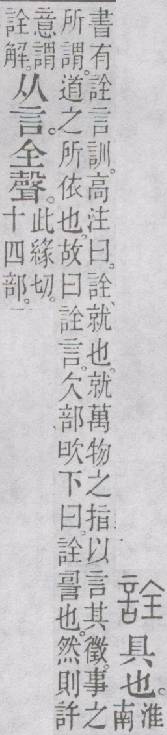 詮
具也。
淮
南
書有詮言訓。高注曰。詮、就也。就萬物之指以言其徵。事之
所謂。道之所依也。故曰詮言。欠部欥下曰詮䛐也。然則許
意謂
詮解。
从言。全聲。
此緣切。
十四部。